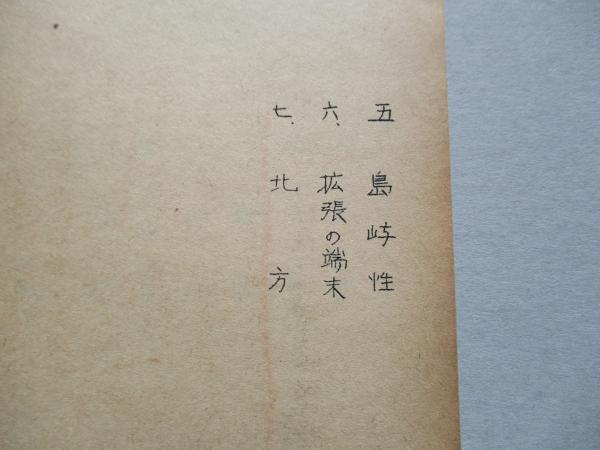 五 島嶼性
六、拡張の端末
七、北方